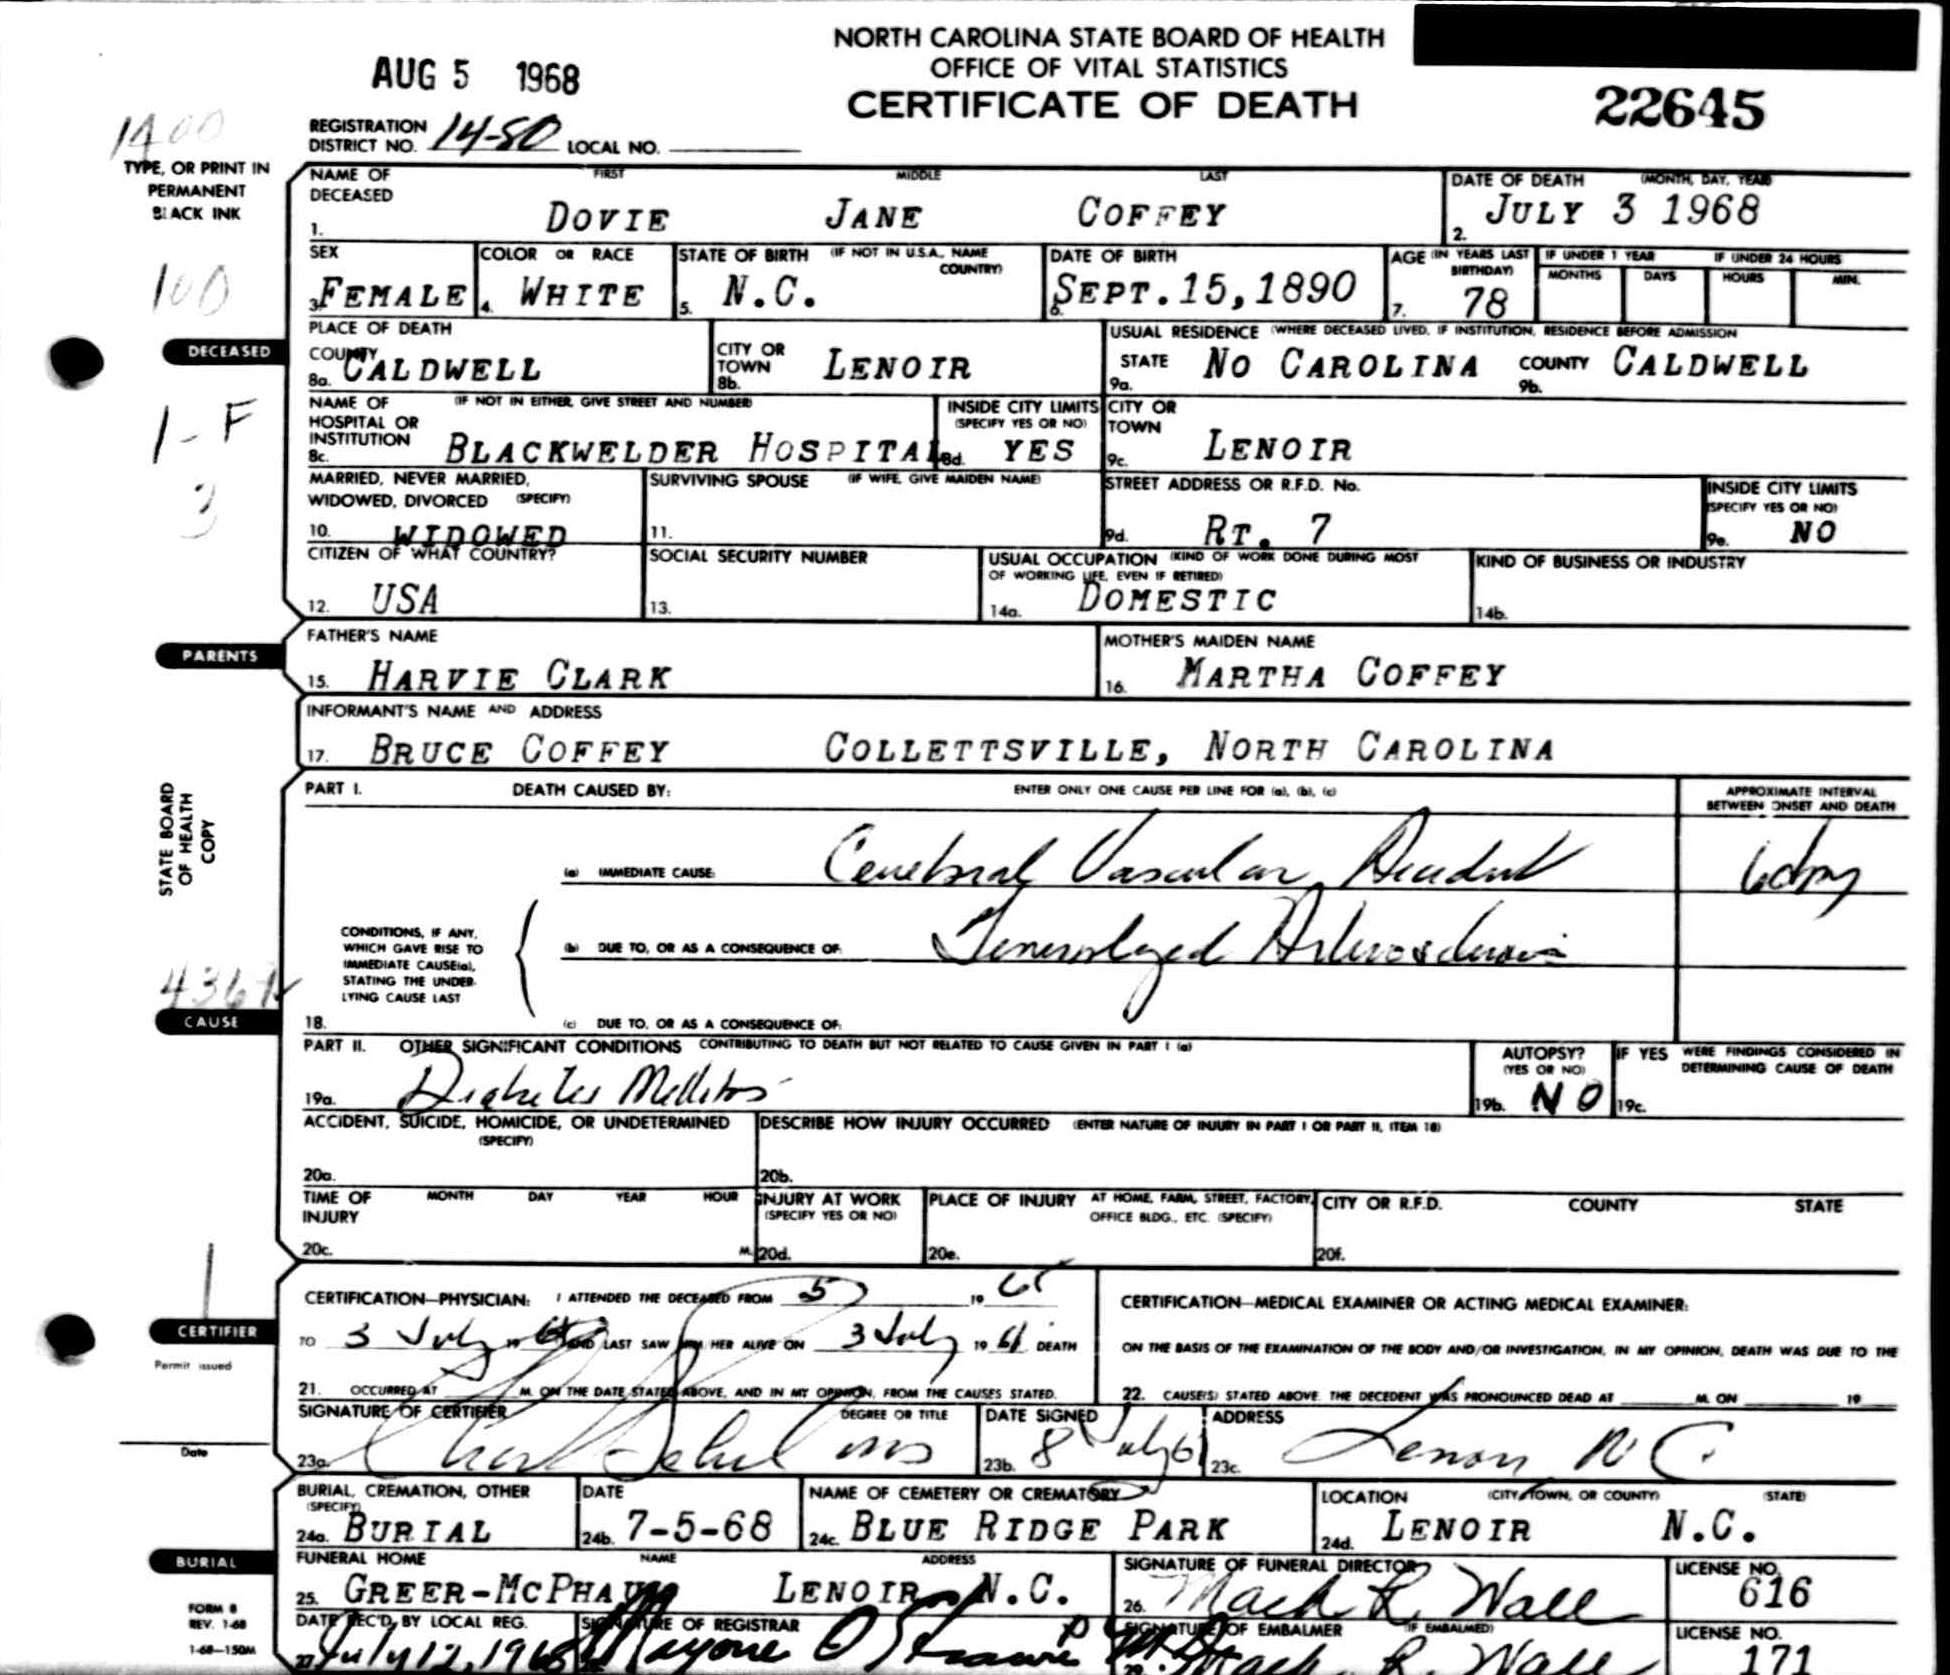 NORTH CAROLINA STATE BOARD OF HEALTH
OFFICE OF VITAL STATISTICS
CERTIFICATE OF DEATH
AUG 5 1968
22645
1400
REGISTRATION DISTRICT NO. 14-80 LOCAL NO.
TYPE, OR PRINT IN
PERMANENT
BLACK INK
NAME OF DECEASED FIRST MIDDLE LAST
1. DOVIE JANE COFFEY
DATE OF DEATH (MONTH, DAY, YEAR)
2. JULY 3 1968
SEX
3. FEMALE
COLOR OR RACE
4. WHITE
STATE OF BIRTH (IF NOT IN U.S.A., NAME COUNTRY)
5. N.C.
DATE OF BIRTH
6. SEPT. 15, 1890
AGE (IN YEARS LAST BIRTHDAY)
7. 78
IF UNDER 1 YEAR
MONTHS DAYS
IF UNDER 24 HOURS
HOURS MIN.
100
DECEASED
PLACE OF DEATH
COUNTY
8a. CALDWELL
CITY OR TOWN
8b. LENOIR
USUAL RESIDENCE (WHERE DECEASED LIVED, IF INSTITUTION, RESIDENCE BEFORE ADMISSION
STATE
9a. NO CAROLINA
COUNTY
9b. CALDWELL
1-F
3
NAME OF HOSPITAL OR INSTITUTION (IF NOT IN EITHER, GIVE STREET AND NUMBER)
8c. BLACKWELDER HOSPITAL
INSIDE CITY LIMITS (SPECIFY YES OR NO)
8d. YES
CITY OR TOWN
9c. LENOIR
MARRIED, NEVER MARRIED, WIDOWED, DIVORCED (SPECIFY)
10. WIDOWED
SURVIVING SPOUSE (IF WIFE, GIVE MAIDEN NAME)
11.
STREET ADDRESS OR R.F.D. No.
9d. RT. 7
INSIDE CITY LIMITS (SPECIFY YES OR NO)
9e. NO
CITIZEN OF WHAT COUNTRY?
12. USA
SOCIAL SECURITY NUMBER
13.
USUAL OCCUPATION (KIND OF WORK DONE DURING MOST OF WORKING LIFE, EVEN IF RETIRED)
14a. DOMESTIC
KIND OF BUSINESS OR INDUSTRY
14b.
PARENTS
FATHER'S NAME
15. HARVIE CLARK
MOTHER'S MAIDEN NAME
16. MARTHA COFFEY
INFORMANT'S NAME AND ADDRESS
17. BRUCE COFFEY COLLETTSVILLE, NORTH CAROLINA
STATE BOARD
OF HEALTH
COPY
PART I. DEATH CAUSED BY: ENTER ONLY ONE CAUSE PER LINE FOR (a), (b), (c)
APPROXIMATE INTERVAL BETWEEN ONSET AND DEATH
(a) IMMEDIATE CAUSE: Cerebral Vascular Accident
CONDITIONS, IF ANY,
WHICH GAVE RISE TO
IMMEDIATE CAUSE(a),
STATING THE UNDER-
LYING CAUSE LAST
(b) DUE TO, OR AS A CONSEQUENCE OF: Generalized Arteriosclerosis
18. (c) DUE TO, OR AS A CONSEQUENCE OF:
CAUSE
PART II. OTHER SIGNIFICANT CONDITIONS CONTRIBUTING TO DEATH BUT NOT RELATED TO CAUSE GIVEN IN PART I (a)
19a. Diabetes Mellitus
AUTOPSY? (YES OR NO)
19b. NO
IF YES WERE FINDINGS CONSIDERED IN DETERMINING CAUSE OF DEATH
19c.
ACCIDENT, SUICIDE, HOMICIDE, OR UNDETERMINED (SPECIFY)
20a.
DESCRIBE HOW INJURY OCCURRED (ENTER NATURE OF INJURY IN PART I OR PART II, ITEM 18)
20b.
TIME OF INJURY MONTH DAY YEAR HOUR
20c. M.
INJURY AT WORK (SPECIFY YES OR NO)
20d.
PLACE OF INJURY AT HOME, FARM, STREET, FACTORY, OFFICE BLDG., ETC. (SPECIFY)
20e.
CITY OR R.F.D. COUNTY STATE
20f.
1
CERTIFIER
CERTIFICATION—PHYSICIAN: I ATTENDED THE DECEASED FROM 5 19 65
TO 3 July 19 AND LAST SAW HIM/HER ALIVE ON 3 July 19 DEATH
21. OCCURRED AT M. ON THE DATE STATED ABOVE, AND IN MY OPINION, FROM THE CAUSES STATED.
CERTIFICATION—MEDICAL EXAMINER OR ACTING MEDICAL EXAMINER:
ON THE BASIS OF THE EXAMINATION OF THE BODY AND/OR INVESTIGATION, IN MY OPINION, DEATH WAS DUE TO THE
22. CAUSE(S) STATED ABOVE. THE DECEDENT WAS PRONOUNCED DEAD AT M. ON 19
Permit issued
Date
SIGNATURE OF CERTIFIER DEGREE OR TITLE
23a.
DATE SIGNED
23b. 8 July
ADDRESS
23c. Lenoir N C
BURIAL, CREMATION, OTHER (SPECIFY)
24a. BURIAL
DATE
24b. 7-5-68
NAME OF CEMETERY OR CREMATORY
24c. BLUE RIDGE PARK
LOCATION (CITY, TOWN, OR COUNTY) (STATE)
24d. LENOIR N.C.
BURIAL
FUNERAL HOME NAME ADDRESS
25. GREER-MCPHAUL LENOIR, N.C.
SIGNATURE OF FUNERAL DIRECTOR
26. Mack R. Wall
LICENSE NO.
616
FORM 8
REV. 1-68
1-68—150M
DATE REC'D, BY LOCAL REG.
27. July 12, 1968
SIGNATURE OF REGISTRAR
SIGNATURE OF EMBALMER (IF EMBALMED)
29. Mack R. Wall
LICENSE NO.
171